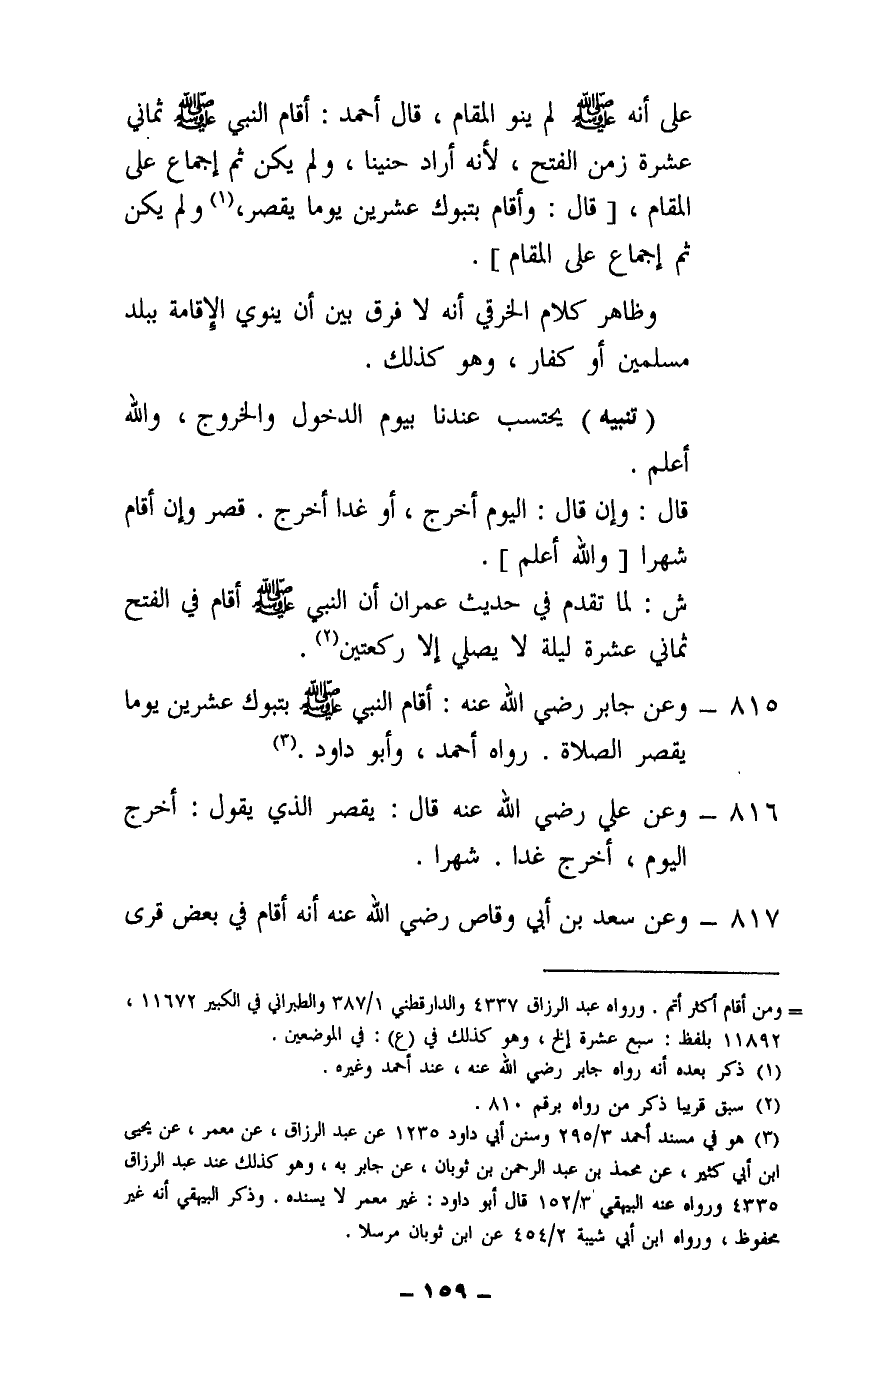 على أنه ﷺ لم ينو المقام ، قال أحمد : أقام النبي ﷺ ثماني
عشرة زمن الفتح ، لأنه أراد حنينا ، ولم يكن ثم إجماع على
المقام ، [ قال : وأقام بتبوك عشرين يوما يقصر،(١) ولم يكن
ثم إجماع على المقام ] .
وظاهر كلام الخرقي أنه لا فرق بين أن ينوي الإقامة ببلد
مسلمين أو كفار ، وهو كذلك .
( تنبيه ) يحتسب عندنا بيوم الدخول والخروج ، والله
أعلم .
قال : وإن قال : اليوم أخرج ، أو غدا أخرج . قصر وإن أقام
شهرا [ والله أعلم ] .
ش : لما تقدم في حديث عمران أن النبي ﷺ أقام في الفتح
ثماني عشرة ليلة لا يصلي إلا ركعتين(٢) .
٨١٥ ـ وعن جابر رضي الله عنه : أقام النبي ﷺ بتبوك عشرين يوما
يقصر الصلاة . رواه أحمد ، وأبو داود .(٣)
٨١٦ ـ وعن علي رضي الله عنه قال : يقصر الذي يقول : أخرج
اليوم ، أخرج غدا . شهرا .
٨١٧ ـ وعن سعد بن أبي وقاص رضي الله عنه أنه أقام في بعض قرى
= ومن أقام أكثر أتم . ورواه عبد الرزاق ٤٣٣٧ والدارقطني ٣٨٧/١ والطبراني في الكبير ١١٦٧٢ ،
١١٨٩٢ بلفظ : سبع عشرة إلخ ، وهو كذلك في (ع) : في الموضعين .
(١) ذكر بعده أنه رواه جابر رضي الله عنه ، عند أحمد وغيره .
(٢) سبق قريبا ذكر من رواه برقم ٨١٠ .
(٣) هو في مسند أحمد ٢٩٥/٣ وسنن أبي داود ١٢٣٥ عن عبد الرزاق ، عن معمر ، عن يحيى
ابن أبي كثير ، عن محمد بن عبد الرحمن بن ثوبان ، عن جابر به ، وهو كذلك عند عبد الرزاق
٤٣٣٥ ورواه عنه البيهقي ١٥٢/٣ قال أبو داود : غير معمر لا يسنده . وذكر البيهقي أنه غير
محفوظ ، ورواه ابن أبي شيبة ٤٥٤/٢ عن ابن ثوبان مرسلا .
ـ ١٥٩ ـ